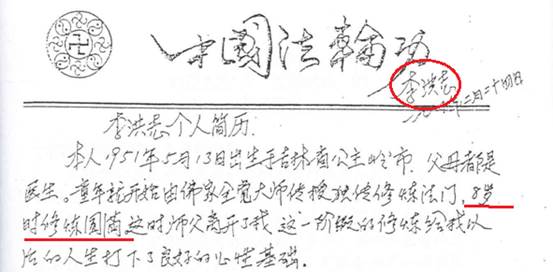 中國法輪功
李洪志
月二十四日
李洪志个人简历.
本人1951年5月13日出生于吉林省公主岭市. 父母都是
医生。童年就开始由佛家全觉大师传授独传修炼法门, 8岁
时修炼圆满这时师父离开了我. 这一阶段的修炼给我以
后的人生打下了良好的心性基础.